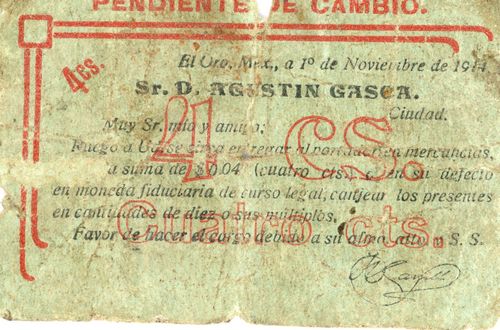 PENDIENTE DE CAMBIO.
El Oro, Mex., a 1º de Noviembre de 1914
4 cs.
Sr. D. AGUSTIN GASCA.
Ciudad.
Muy Sr. mío y amigo:
4 CS.
Ruego a Ud. se sirva entregar al portador en mercancías,
a suma de $0.04 (cuatro cts.) o en su defecto
en moneda fiduciaria de curso legal, canjear los presentes
en cantidades de diez o sus multiplos.
Cuatro cts.
Favor de hacer el cargo debido a su afmo. atto. y S. S.